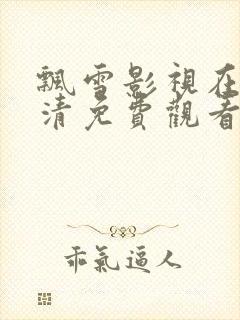 飄雪影視在
清免費觀看
乖氣逼人